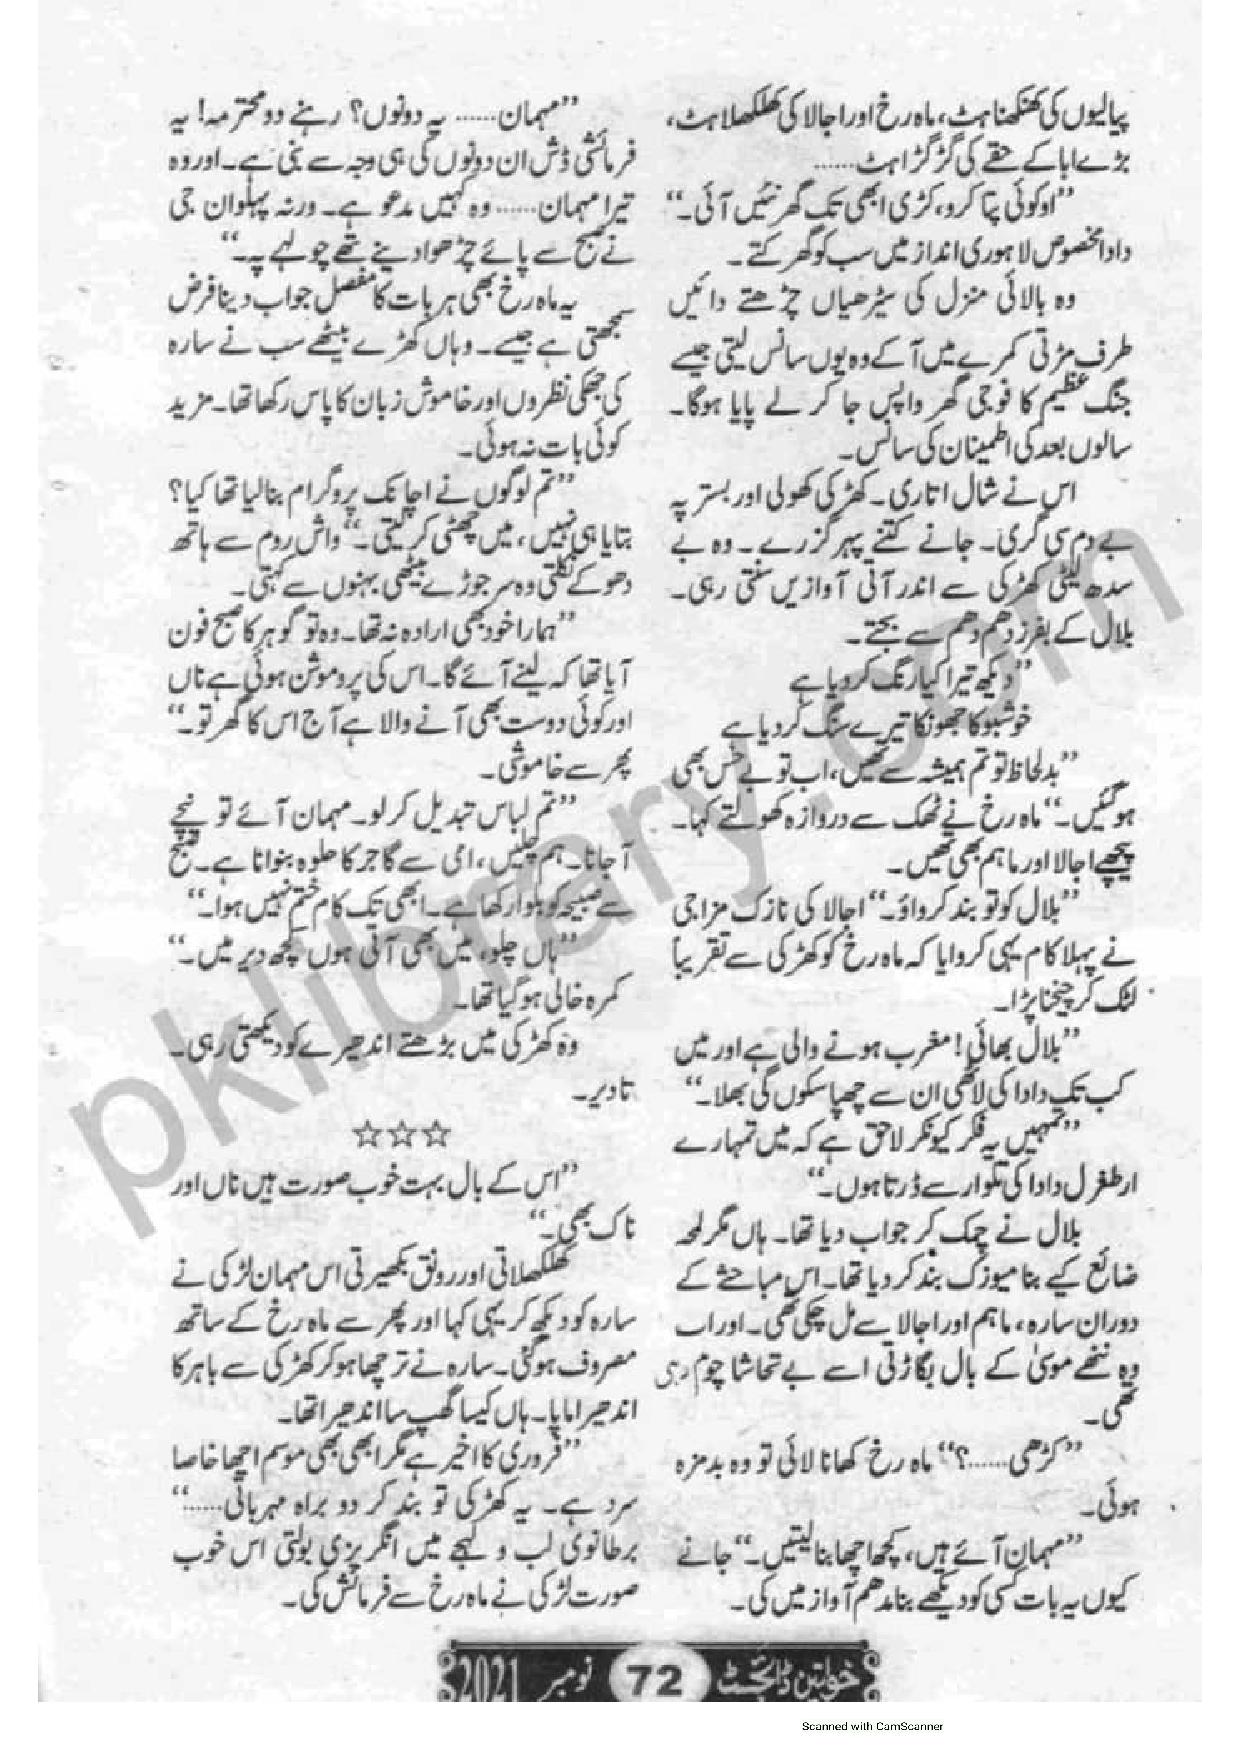 پیالیوں کی کھنکھناہٹ، ماہ رخ اور اجالا کی کھلکھلاہٹ،
بڑے ابا کے حقے کی گڑگڑاہٹ......
”او کوئی پتا کرو، کڑی ابھی تک گھر نئیں آئی۔“
دادا مخصوص لاہوری انداز میں سب کو گھرکتے۔
وہ بالائی منزل کی سیڑھیاں چڑھتے دائیں
طرف مڑتی کمرے میں آ کے وہ یوں سانس لیتی جیسے
جنگ عظیم کا فوجی گھر واپس جا کر لے پایا ہوگا۔
سالوں بعد کی اطمینان کی سانس۔
اس نے شال اتاری۔ کھڑکی کھولی اور بستر پہ
بے دم سی گری۔ جانے کتنے پہر گزرے۔ وہ بے
سدھ لیٹی کھڑکی سے اندر آتی آوازیں سنتی رہی۔
بلال کے بفرز دھم دھم سے بجتے۔
”دیکھ تیرا کیا رنگ کر دیا ہے
خوشبو کا جھونکا تیرے سنگ کر دیا ہے
”بدلحاظ تو تم ہمیشہ سے تھیں، اب تو بے حس بھی
ہو گئیں۔“ ماہ رخ نے ٹھک سے دروازہ کھولتے کہا۔
پیچھے اجالا اور ماہم بھی تھیں۔
”بلال کو تو بند کرواؤ۔“ اجالا کی نازک مزاجی
نے پہلا کام یہی کروایا کہ ماہ رخ کو کھڑکی سے تقریباً
لٹک کر چیخنا پڑا۔
”بلال بھائی! مغرب ہونے والی ہے اور میں
کب تک دادا کی لاٹھی ان سے چھپا سکوں گی بھلا۔“
”تمہیں یہ فکر کیونکر لاحق ہے کہ میں تمہارے
ارطغرل دادا کی تلوار سے ڈرتا ہوں۔“
بلال نے چمک کر جواب دیا تھا۔ ہاں مگر لمحہ
ضائع کیے بنا میوزک بند کر دیا تھا۔ اس مباحثے کے
دوران سارہ، ماہم اور اجالا سے مل چکی تھی۔ اور اب
وہ ننھے موسیٰ کے بال بگاڑتی اسے بے تحاشا چوم رہی
تھی۔
”کڑھی......؟“ ماہ رخ کھانا لائی تو وہ بدمزہ
ہوئی۔
”مہمان آئے ہیں، کچھ اچھا بنا لیتیں۔“ جانے
کیوں یہ بات کسی کو دیکھے بنا مدھم آواز میں کی۔
”مہمان...... یہ دونوں؟ رہنے دو محترمہ! یہ
فرمائشی ڈش ان دونوں کی ہی وجہ سے بنی ہے۔ اور وہ
تیرا مہمان...... وہ کہیں مدعو ہے۔ ورنہ پہلوان جی
نے صبح سے پائے چڑھوا دینے تھے چولہے پہ۔“
یہ ماہ رخ بھی ہر بات کا مفصل جواب دینا فرض
سمجھتی ہے جیسے۔ وہاں کھڑے بیٹھے سب نے سارہ
کی جھکی نظروں اور خاموش زبان کا پاس رکھا تھا۔ مزید
کوئی بات نہ ہوئی۔
”تم لوگوں نے اچانک پروگرام بنا لیا تھا کیا؟
بتایا ہی نہیں، میں چھٹی کر لیتی۔“ واش روم سے ہاتھ
دھو کے نکلتی وہ سر جوڑے بیٹھی بہنوں سے کہتی۔
”ہمارا خود بھی ارادہ نہ تھا۔ وہ تو گوہر کا صبح فون
آیا تھا کہ لینے آئے گا۔ اس کی پروموشن ہوئی ہے ناں
اور کوئی دوست بھی آنے والا ہے آج اس کا گھر تو۔“
پھر سے خاموشی۔
”تم لباس تبدیل کر لو۔ مہمان آئے تو نیچے
آ جانا۔ ہم چلیں، امی سے گاجر کا حلوہ بنوانا ہے۔ صبح
سے صبیحہ کو بلوا رکھا ہے۔ ابھی تک کام ختم نہیں ہوا۔“
”ہاں چلو، میں بھی آتی ہوں کچھ دیر میں۔“
کمرہ خالی ہو گیا تھا۔
وہ کھڑکی میں بڑھتے اندھیرے کو دیکھتی رہی۔
تا دیر۔
☆☆☆
”اس کے بال بہت خوب صورت ہیں ناں اور
ناک بھی۔“
کھلکھلاتی اور رونق بکھیرتی اس مہمان لڑکی نے
سارہ کو دیکھ کر یہی کہا اور پھر سے ماہ رخ کے ساتھ
مصروف ہو گئی۔ سارہ نے ترچھا ہو کر کھڑکی سے باہر کا
اندھیرا ماپا۔ ہاں کیسا گھپ سا اندھیرا تھا۔
”فروری کا اخیر ہے مگر ابھی بھی موسم اچھا خاصا
سرد ہے۔ یہ کھڑکی تو بند کر دو براہ مہربانی......“
برطانوی لب و لہجے میں انگریزی بولتی اس خوب
صورت لڑکی نے ماہ رخ سے فرمائش کی۔
خواتین ڈائجسٹ 72 نومبر 2021
pklibrary.com
Scanned with CamScanner